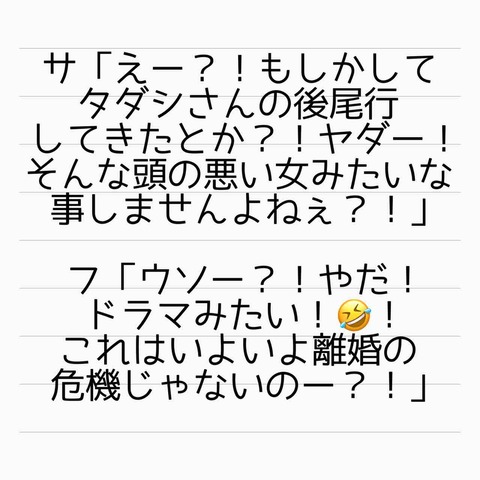 サ「えー？！もしかして
タダシさんの後尾行
してきたとか？！ヤダー！
そんな頭の悪い女みたいな
事しませんよねぇ？！」
フ「ウソー？！やだ！
ドラマみたい！🤣！
これはいよいよ離婚の
危機じゃないのー？！」